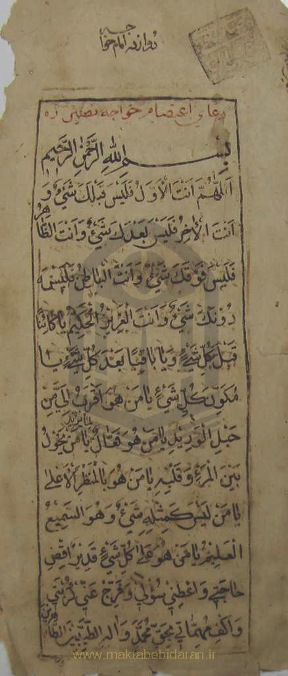 دوازده امام خواجه
دعای اعتصام خواجه نصیر ره
بسم الله الرحمن الرحیم
اللهم انت الاول فلیس قبلک شیء و
انت الاخر فلیس بعدک شیء وانت الظاهر
فلیس فوقک شیء وانت الباطن فلیس
دونک شیء وانت العزیز الحکیم یا کائنا
قبل کل شیء ویا باقیا بعد کل شیء یا
مکون کل شیء یا من هو اقرب الی من
حبل الورید یا من هو فعال یا من یحول
بین المرء و قلبه یا من هو بالمنظر الاعلی
یا من لیس کمثله شیء وهو السمیع
العلیم یا من هو علی کل شیء قدیر اقض
حاجتی واعطنی سؤلی وفرج عنی کربتی
واکف مهماتی بحق محمد وآله الطیبین الطاهرین
www.maktabebidaran.ir